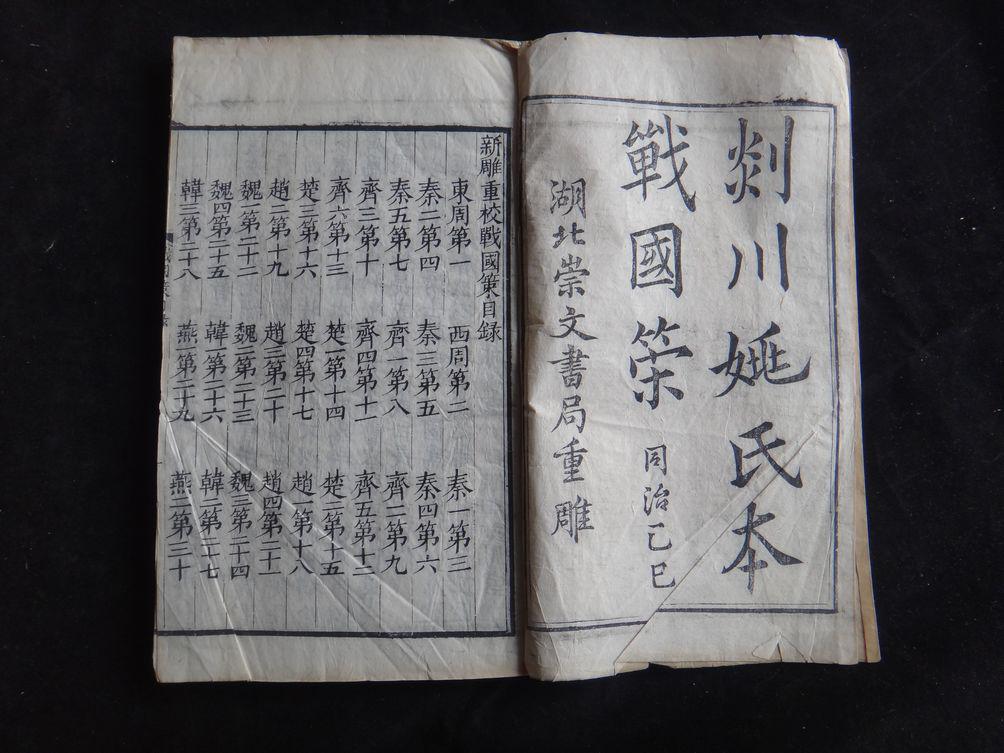 剡川姚氏本
戰國策 同治己巳
湖北崇文書局重雕
新雕重校戰國策目錄
東周第一 西周第二 秦一第三
秦二第四 秦三第五 秦四第六
秦五第七 齊一第八 齊二第九
齊三第十 齊四第十一 齊五第十二
齊六第十三 楚一第十四 楚二第十五
楚三第十六 楚四第十七 趙一第十八
趙二第十九 趙三第二十 趙四第二十一
魏一第二十二 魏二第二十三 魏三第二十四
魏四第二十五 韓一第二十六 韓二第二十七
韓三第二十八 燕一第二十九 燕二第三十